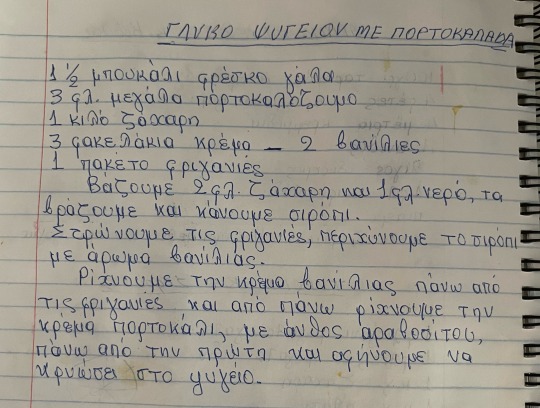 ΓΛΥΚΟ ΨΥΓΕΙΟΥ ΜΕ ΠΟΡΤΟΚΑΛΑΔΑ
1 ½ μπουκάλι φρέσκο γάλα
3 φλ. μεγάλα πορτοκαλόζουμο
1 κιλό ζάχαρη
3 φακελάκια κρέμα – 2 βανίλιες
1 πακέτο φριγανιές
Βάζουμε 2 φλ. ζάχαρη και 1 φλ. νερό, τα
βράζουμε και κάνουμε σιρόπι.
Στρώνουμε τις φριγανιές, περιχύνουμε το σιρόπι
με άρωμα βανίλιας.
Ρίχνουμε την κρέμα βανίλιας πάνω από
τις φριγανιές και από πάνω ρίχνουμε την
κρέμα πορτοκάλι, με άνθος αραβοσίτου,
πάνω από την πρώτη και αφήνουμε να
κρυώσει στο ψυγείο.